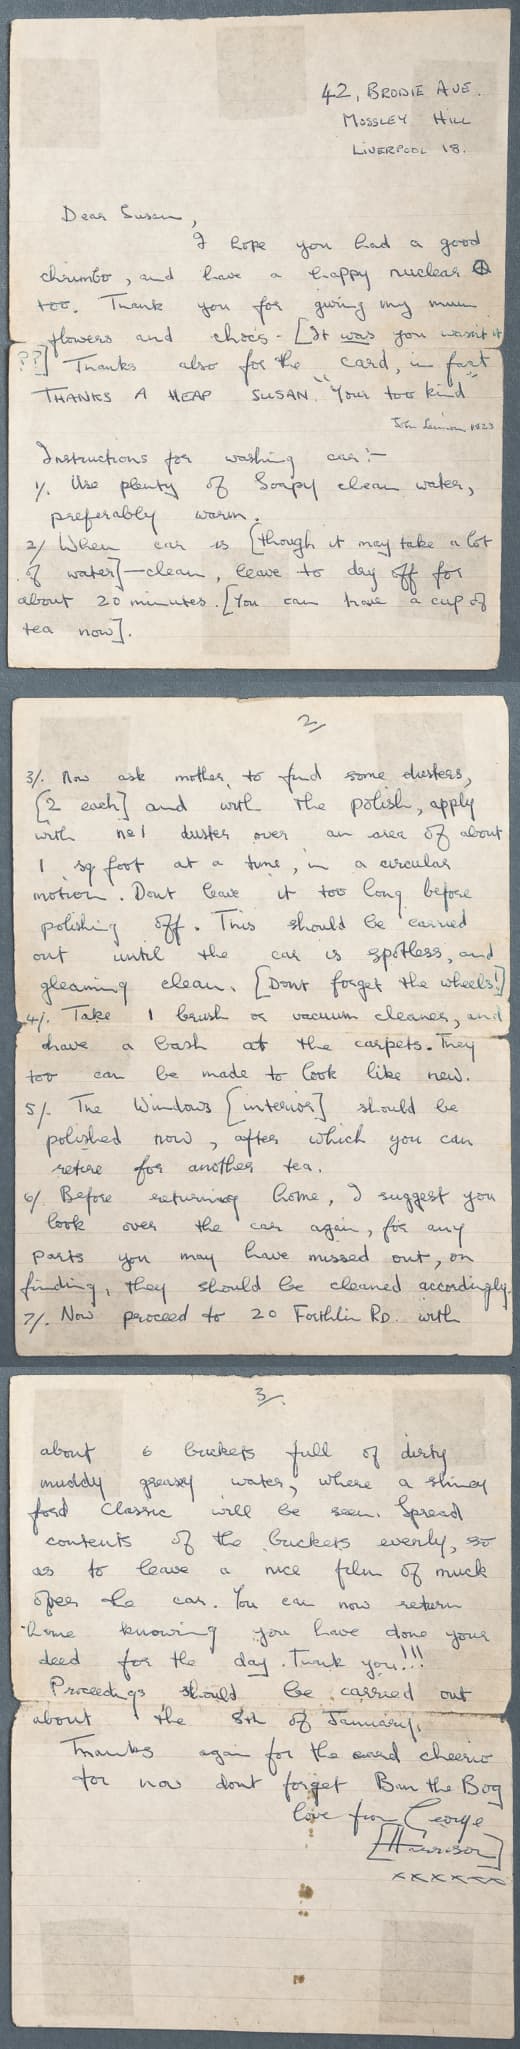 42, BRODIE AVE.
MOSSLEY HILL
LIVERPOOL 18.
Dear Susan,
I hope you had a good
chrimbo, and have a happy nuclear ☮
too. Thank you for giving my mum
flowers and chocs - [It was you wasn't it
??] Thanks also for the card, in fact
THANKS A HEAP SUSAN. "Your too kind"
John Lennon 1823
Instructions for washing car:-
1/. Use plenty of Soapy clean water,
preferably warm.
2/ When car is [though it may take a lot
of water] - clean, leave to dry off for
about 20 minutes. [You can have a cup of
tea now].
2/
3/. Now ask mother, to find some dusters,
[2 each] and with the polish, apply
with no1 duster over an area of about
1 sq foot at a time, in a circular
motion. Dont leave it too long before
polishing off. This should be carried
out until the car is spotless, and
gleaming clean. [Dont forget the wheels!]
4/. Take 1 brush or vacuum cleaner, and
have a bash at the carpets. They
too can be made to look like new.
5/. The Windows [interior] should be
polished now, after which you can
retire for another tea.
6/. Before returning home, I suggest you
look over the car again, for any
parts you may have missed out, on
finding, they should be cleaned accordingly.
7/. Now proceed to 20 Forthlin RD. with
3/.
about 6 buckets full of dirty
muddy greasy water, where a shiney
ford Classic will be seen. Spread
contents of the buckets evenly, so
as to leave a nice film of muck
over the car. You can now return
home knowing you have done your
deed for the day. Tunk you!!!
Proceedings should be carried out
about the 8th of January.
Thanks again for the card cheerio
for now dont forget Ban the Bog
love from George
[Harrison]
xxxxxx